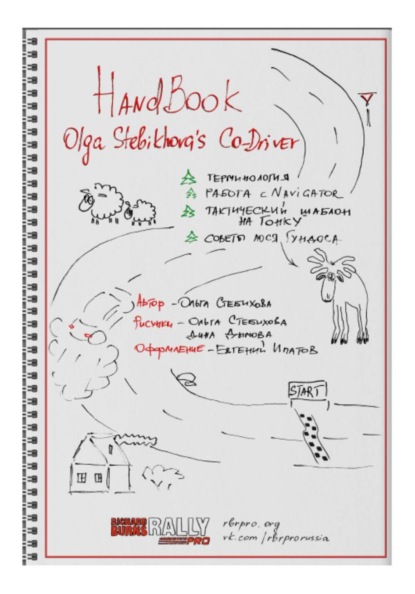 HANDBOOK
Olga Stebikhova's CO-DRIVER
ТЕРМИНОЛОГИЯ
РАБОТА С NAVIGATOR
ТАКТИЧЕСКИЙ ШАБЛОН
НА ГОНКУ
СОВЕТЫ ЛОСЯ ГУНДОСА
Автор - ОЛЬГА СТЕБИХОВА
Рисунки - ОЛЬГА СТЕБИХОВА
ДИНА ДЫМОВА
ОФОРМЛЕНИЕ - ЕВГЕНИЙ ИПАТОВ
START
RICHARD BURNS RALLY PRO
rbrpro.org
vk.com/rbrprorussia